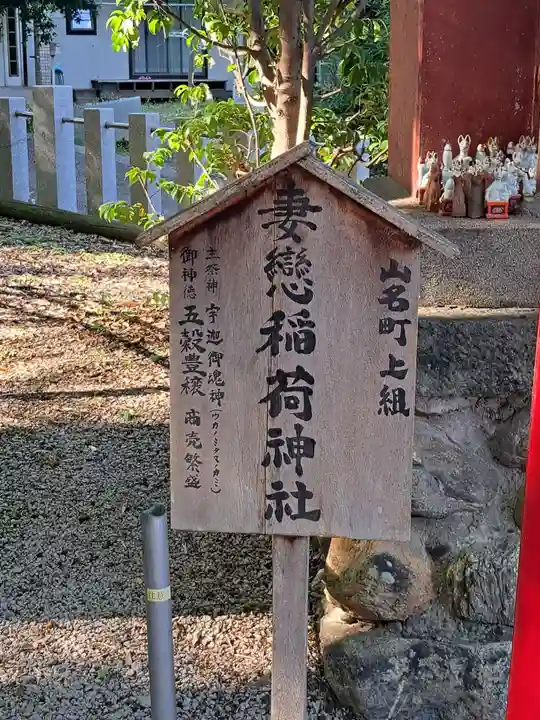 山名町上組
妻戀稲荷神社
主祭神 宇迦御魂神(ウカノミタマノカミ)
御神徳 五穀豊穣 商売繁盛
注意